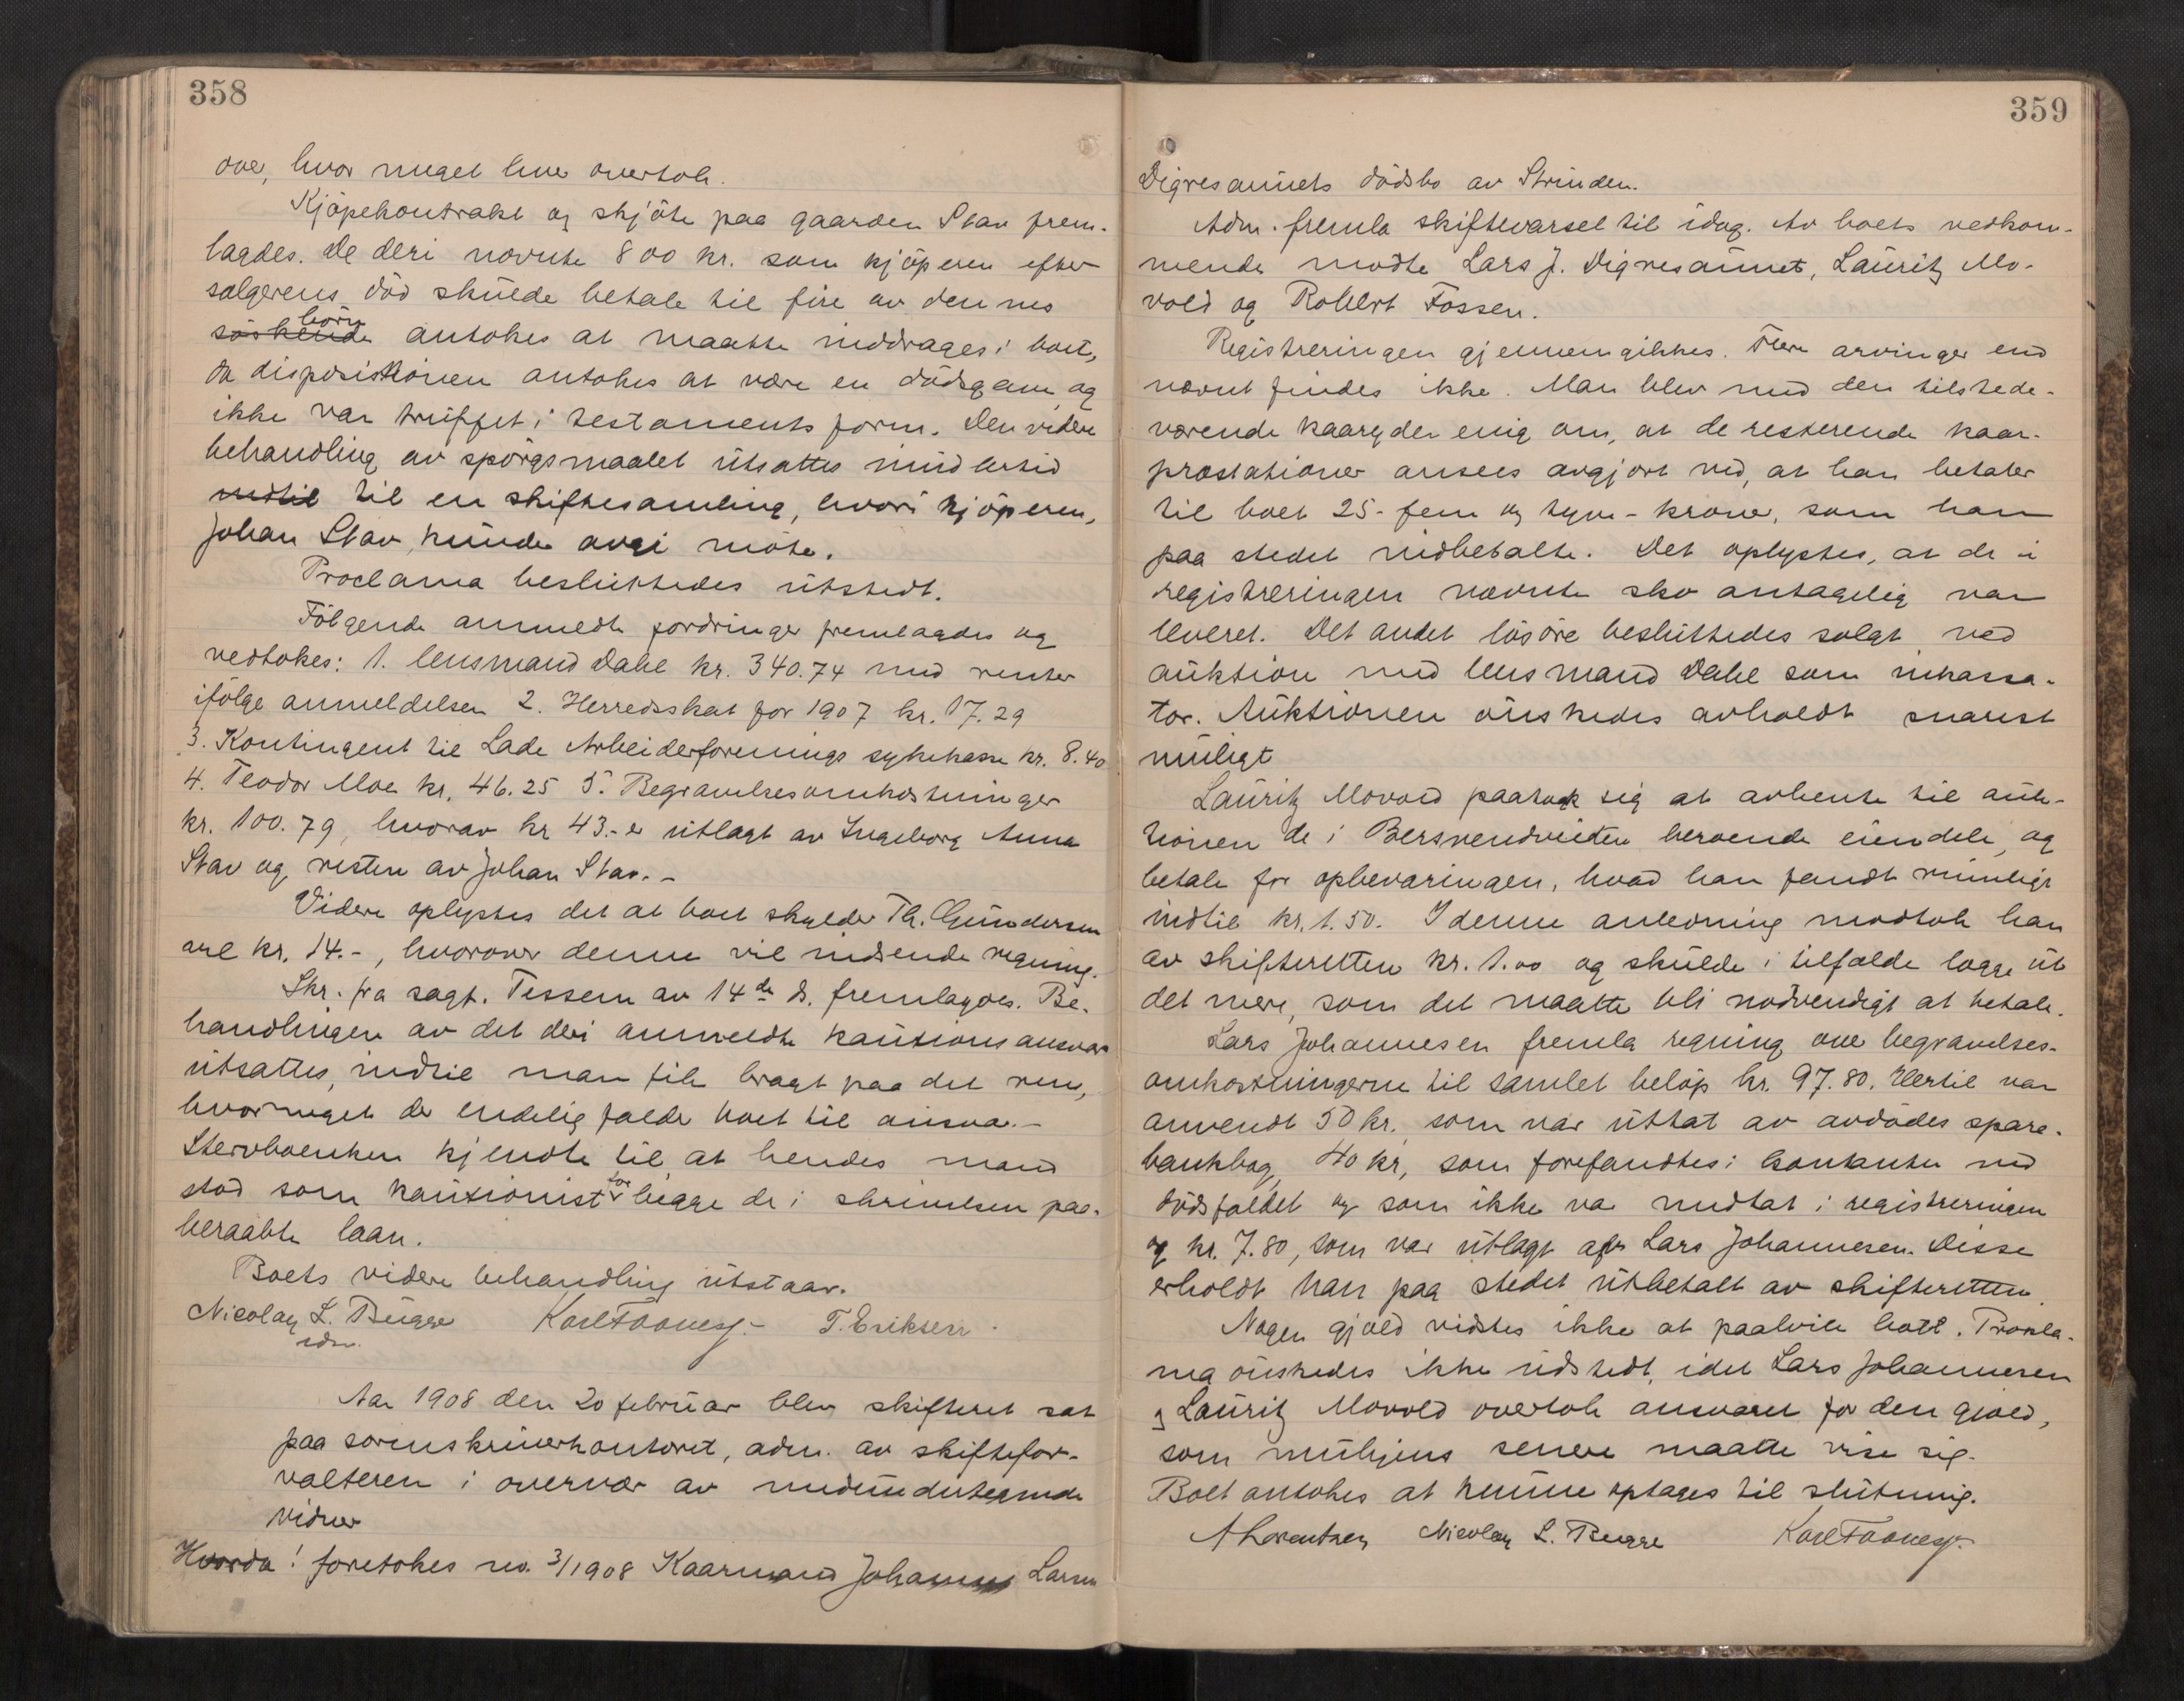 358
over, hvor meget hver overtok.
Kjøpekontrakt og skjøte paa gaarden Stav frem-
lagdes. De deri nævnte 800 kr. som kjøperen efter
sælgerens død skulde betale til fire av dennes
søskende børn antokes at maatte inddrages i boet,
da disposistionen antokes at være en dødsgave og
ikke var truffet i testaments form. Den videre
behandling av spørgsmaalet utsattes imidlertid
indtil til en skiftesamling, hvori kjøperen,
Johan Stav, kunde møte.
Proclama besluttedes utstedt.
Følgende anmeldte fordringer fremlagdes og
vedtokes: 1. lensmand Dahl kr. 340.74 med renter
ifølge anmeldelsen 2. Herredsskat for 1907 kr. 17.29
3. Kontingent til Lade Arbeiderforenings sykekasse kr. 8.40
4. Teodor Moe kr. 46.25 5. Begravelsesomkostninger
kr. 100.79, hvorav kr 43.- er utlagt av Ingeborg Anna
Stav og resten av Johan Stav. -
Videre oplystes det at boet skylder Th. Gundersen
ca kr. 14.-, hvorover denne vil indsende regning.
Skr. fra sagf. Tessem av 14de ds. fremlagdes. Be-
handlingen av det deri anmeldte kautionsansvar
utsattes, indtil man fik bragt paa det rene,
hvormeget der endelig falder boet til ansvar. -
Stervboenken kjendte til, at hendes mand
stod som kautionist for begge de i skrivelsen paa-
beraabte laan.
Boets videre behandling utstaar.
Nicolay L. Bugge Karl Faanes. T. Eriksen
adm.
Aar 1908 den 20 februar blev skifteret sat
paa sorenskriverkontoret, adm. av skiftefor-
valteren i overvær av medundertegnede
vidner
Hvorda! foretokes no. 3/1908 Kaarmand Johannes Larsen
359
Digresaunets dødsbo av Strinden.
Adm. fremla skiftevarsel til idag. Av boets vedkom-
mende mødte Lars J. Digresaunet, Lauritz Mo-
vold og Robert Fossen.
Registreringen gjennemgikkes. Flere arvinger end
nævnt findes ikke. Man blev med den tilstede-
værende kaaryder enig om, at de resterende kaar-
præstationer ansees avgjort ved, at han betaler
til boet 25- fem og tyve - kroner, som han
paa stedet indbetalte. Det oplystes, at de i
registreringen nævnte sko antagelig var
leveret. Det andet løsøre besluttedes solgt ved
auktion med lensmand Dahl som inkassa-
tor. Auktionen ønskedes avholdt snarest
muligt
Lauritz Movold paatok sig at avhente til auk-
tionen de i Bersvendveiten beroende eiendele, og
betale for opbevaringen, hvad han fandt rimeligt
indtil kr. 1.50. I denne anledning modtok han
av skifteretten kr. 1.00 og skulde i tilfælde lægge ut
det mere, som det maatte bli nødvendigt at betale.
Lars Johannesen fremla regning over begravelses-
omkostningerne til samlet beløp kr. 97.80. Hertil var
anvendt 50 kr. som var uttat av avdødes spare-
bankbog, 40 kr, som forefandtes i kontanter ved
dødsfaldet og som ikke var medtat i registreringen
og kr. 7.80, som var utlagt af Lars Johannesen. Disse
erholdt han paa stedet utbetalt av skifteretten.
Nogen gjæld vidstes ikke at paahvile boet. Prokla-
ma ønskedes ikke udstedt, idet Lars Johannesen
og Lauritz Movold overtok ansvaret for den gjæld,
som muligens senere maatte vise sig.
Boet antokes at kunne optages til slutning.
A Lorentzen Nicolay L. Bugge Karl Faanes.